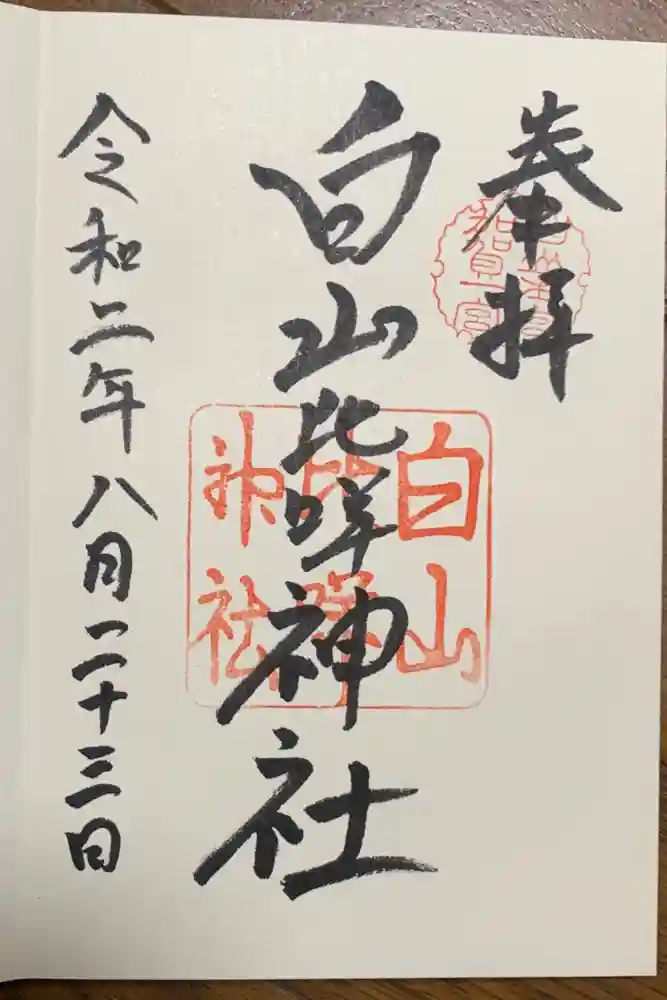 奉拝
白山比咩神社
白山比咩神社
令和二年八月二十三日